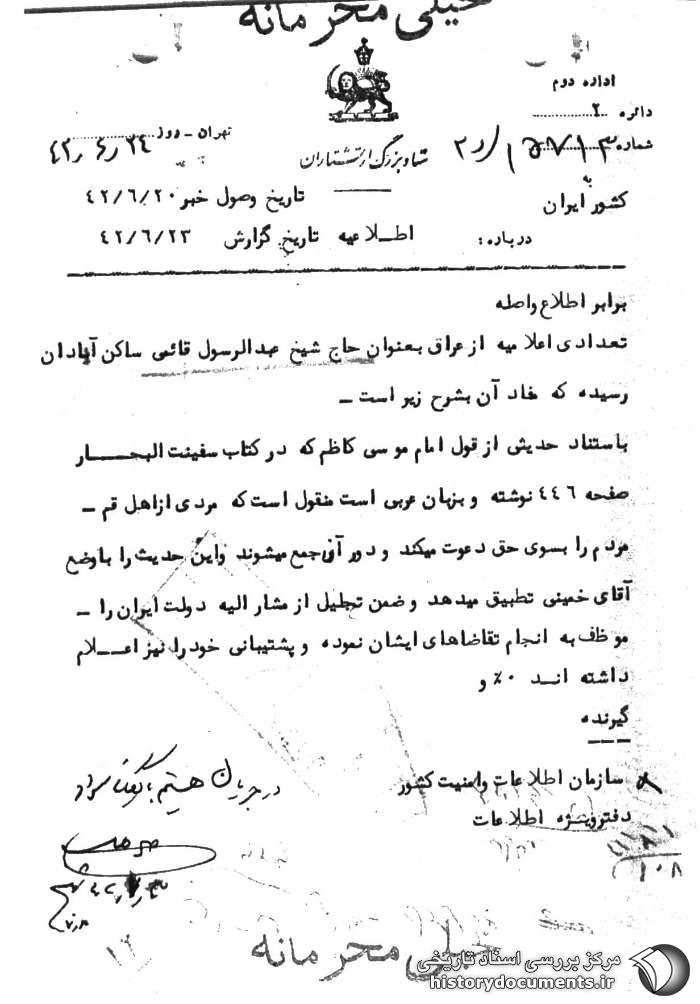 خیلی محرمانه
اداره دوم
دائره ۲
شماره
تهران - روز ۴۲/۶/۲۴
به
کشور ایران
تاریخ وصول خبر ۴۲/۶/۲۰
درباره:
اطلاعیه تاریخ گزارش ۴۲/۶/۲۳
برابر اطلاع واصله
تعدادی اعلامیه از عراق بعنوان حاج شیخ عبدالرسول قائمی ساکن آبادان
رسیده که مفاد آن بشرح زیر است ـ
باستناد حدیثی از قول امام موسی کاظم که در کتاب سفینت البحــار
صفحه ۴۴۶ نوشته و بزبان عربی است منقول است که مردی از اهل قم ـ
مردم را بسوی حق دعوت میکند و دور آن جمع میشوند و این حدیث را با وضع
آقای خمینی تطبیق میدهد و ضمن تجلیل از مشار الیه دولت ایران را ـ
موظف به انجام تقاضاهای ایشان نموده و پشتیبانی خود را نیز اعــلام
داشته انــد ۰٪ و
گیرنده
سازمان اطلاعات وامنیت کشور
دفتر ویژه اطلاعات
در جریان هستیم
۱۰۸
خیلی محرمانه
مرکز بررسی اسناد تاریخی
historydocuments.ir